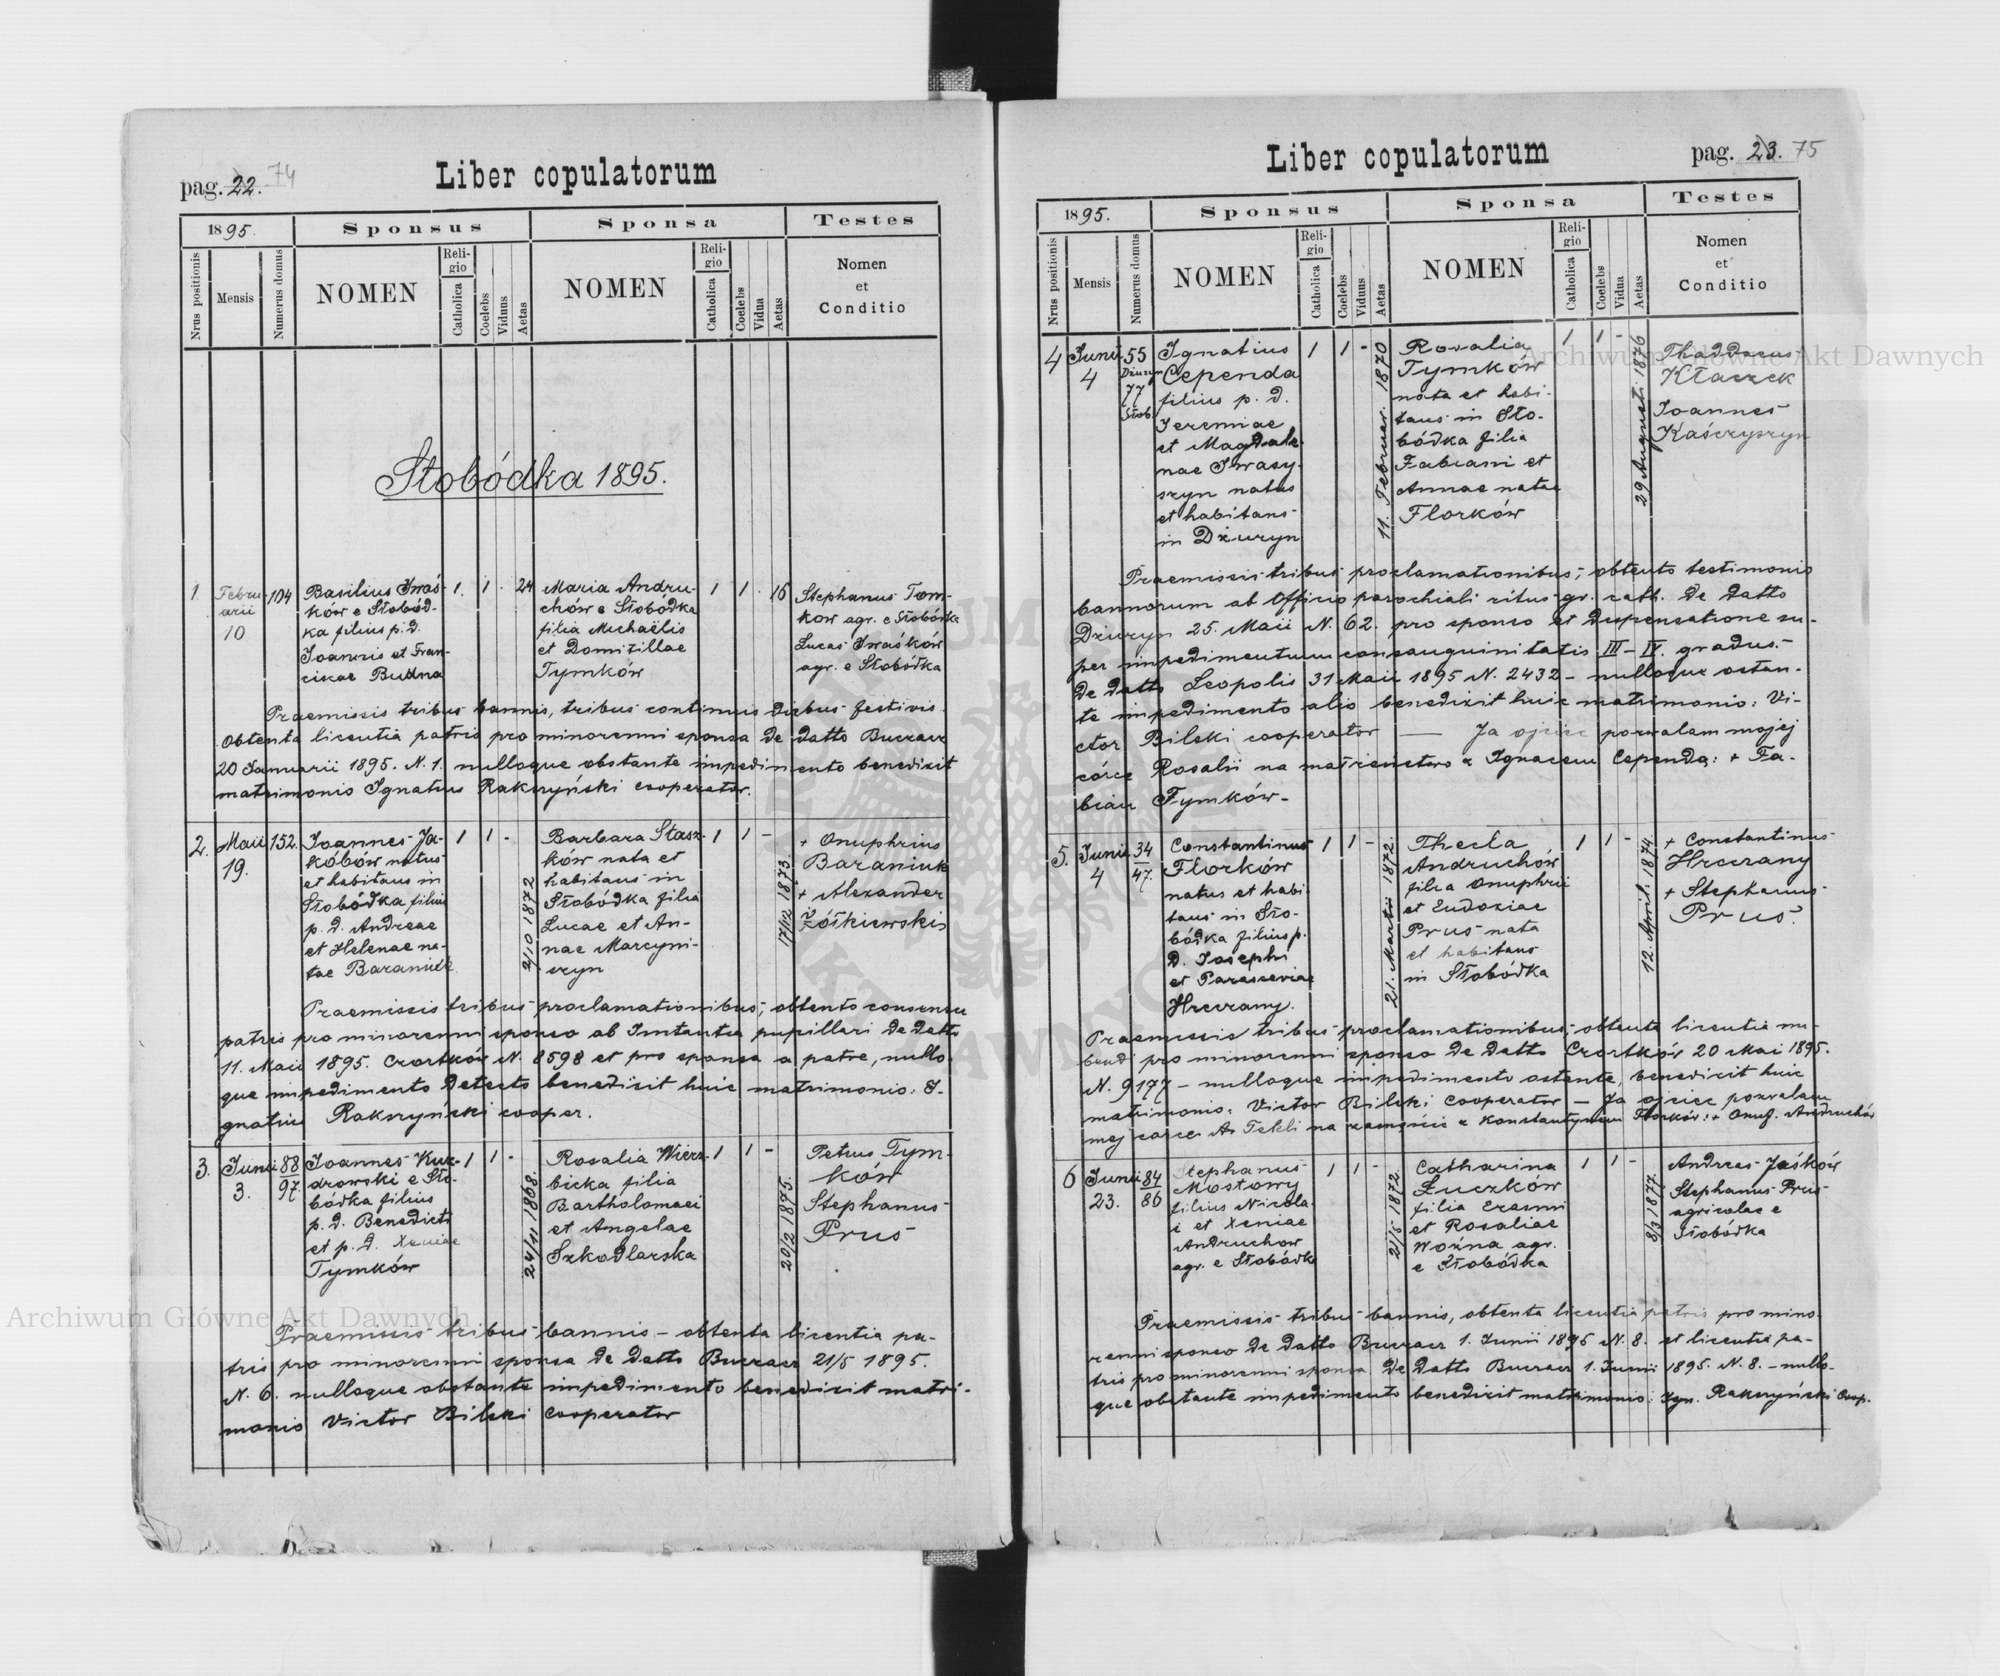 pag. 22. 74
Liber copulatorum
1895.
Sponsus
Sponsa
Testes
Nrus positionis
Mensis
Numerus domus
NOMEN
Religio
Catholica
Coelebs
Viduus
Aetas
NOMEN
Religio
Catholica
Coelebs
Vidua
Aetas
Nomen
et
Conditio
Słobódka 1895.
1.
Febru-
arii
10
104
Basilius Iwaś-
ków e Słobód-
ka filius p. d.
Joannis et Fran-
ciscae Budna
1. 1 . 24
Maria Andru-
chów e Słobódka
filia Michaëlis
et Domizillae
Tymków
1 1 . 16
Stephanus Tom-
kow agr. e Słobódka
Lucas Iwaśków
agr. e Słobódka
Praemissis tribus bannis, tribus continuis diebus festivis
obtenta licentia patris pro minorenni sponsa de datto Buczacz
20 Januarii 1895. N. 1. nulloque obstante impedimento benedixit
matrimonio Ignatius Rakszyński cooperator.
2.
Maii
19.
152.
Joannes Ja-
kóbów natus
et habitans in
Słobódka filius
p. d. Andreae
et Helenae na-
tae Baraniuk
1 1 -
2/10 1872
Barbara Stasz-
ków nata et
habitans in
Słobódka filia
Lucae et An-
nae Marcyni-
szyn
1 1 -
17/12 1873
+ Onuphrius
Baraniuk
+ Alexander
Żółkiewski
Praemissis tribus proclamationibus, obtento consensu
patris pro minorenni sponso ab Instantia pupillari de datto
11. Maii 1895. Czortków N. 8598 et pro sponsa a patre, nullo-
que impedimento detecto benedixit huic matrimonio: I-
gnatius Rakszyński cooper.
3.
Junii
3.
88
97.
Joannes Kuk-
drowski e Sło-
bódka filius
p. d. Benedicti
et p. d. Xeniae
Tymków
1 1 -
24/11 1868.
Rosalia Wierz-
bicka filia
Bartholomaei
et Angelae
Szkodlarska
1 1 -
20/2 1875.
Petrus Tym-
ków
Stephanus
Prus
Praemissis tribus bannis - obtenta licentia pa-
tris pro minorenni sponsa de datto Buczacz 21/5 1895.
N. 6. nulloque obstante impedimento benedixit matri-
monio Victor Bilski cooperator
Liber copulatorum
pag. 23. 75
1895.
Sponsus
Sponsa
Testes
Nrus positionis
Mensis
Numerus domus
NOMEN
Religio
Catholica
Coelebs
Viduus
Aetas
NOMEN
Religio
Catholica
Coelebs
Vidua
Aetas
Nomen
et
Conditio
4
Junii
4
55
Dżuryn
77
Słob.
Ignatius
Cependa
filius p. d.
Jeremiae
et Magdale-
nae Iwasy-
szyn natus
et habitans
in Dżuryn
1 1 -
11. Februar. 1870
Rosalia
Tymków
nata et habi-
tans in Sło-
bódka filia
Fabiani et
Annae natae
Florków
1 1 -
29 Augusti 1876
Thaddaeus
Kłaczek
Joannes
Kaśczyszyn
Praemissis tribus proclamationibus, obtento testimonio
bannorum ab Officio parochiali ritus gr. cath. de datto
Dżuryn 25. Maii N. 62. pro sponso et dispensatione su-
per impedimentum consanguinitatis III-IV. gradus
de datto Leopolis 31 Maii 1895 N. 2432 - nulloque ostan-
te impedimento alio benedixit huic matrimonio: Vi-
ctor Bilski cooperator — Ja ojciec pozwalam mojej
córce Rosalii na małżeństwo z Ignacem Cependą: + Fa-
bian Tymków-
5.
Junii
4
34
47.
Constantinus
Florków
natus et habi-
tans in Sło-
bódka filius p.
d. Josephi
et Parasceviae
Hreczany.
1 1 -
21. Martii 1872.
Thecla
Andruchów
filia Onuphrii
et Eudoxiae
Prus nata
et habitans
in Słobódka
1 1 -
12. April. 1874.
+ Constantinus
Hreczany
+ Stephanus
Prus.
Praemissis tribus proclamationibus, obtenta licentia nu-
bendi pro minorenni sponso de datto Czortków 20 Mai 1895.
N. 9177 - nulloque impedimento ostente, benedixit huic
matrimonio: Victor Bilski cooperator - Ja ojciec pozwalam
mej córce Tekli na zamęście z Konstantynem Florków: + Onuf. Andruchów
6
Junii
23.
84
86
Stephanus
Mostowy
filius Nicola-
i et Xeniae
Andruchow
agr. e Słobódka
1 1 -
21/5 1872.
Catharina
Łuczków
filia Erasmi
et Rosaliae
Woźna agr.
e Słobódka
1 1 -
8/3 1877.
Andreas Jaśków
Stephanus Prus
agricolae e
Słobódka
Praemissis tribus bannis, obtenta licentia patris pro mino-
renni sponso de datto Buczacz 1. Junii 1895 N. 8. et licentia pa-
tris pro minorenni sponsa de datto Buczacz 1. Junii 1895. N. 8. - nullo-
que obstante impedimento benedixit matrimonio: Ign. Rakszyński Coop.
Archiwum Główne Akt Dawnych
Archiwum Główne Akt Dawnych